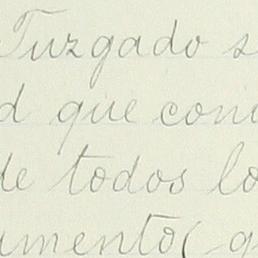 Juzgado s
d que cono
de todos lo
umento( q